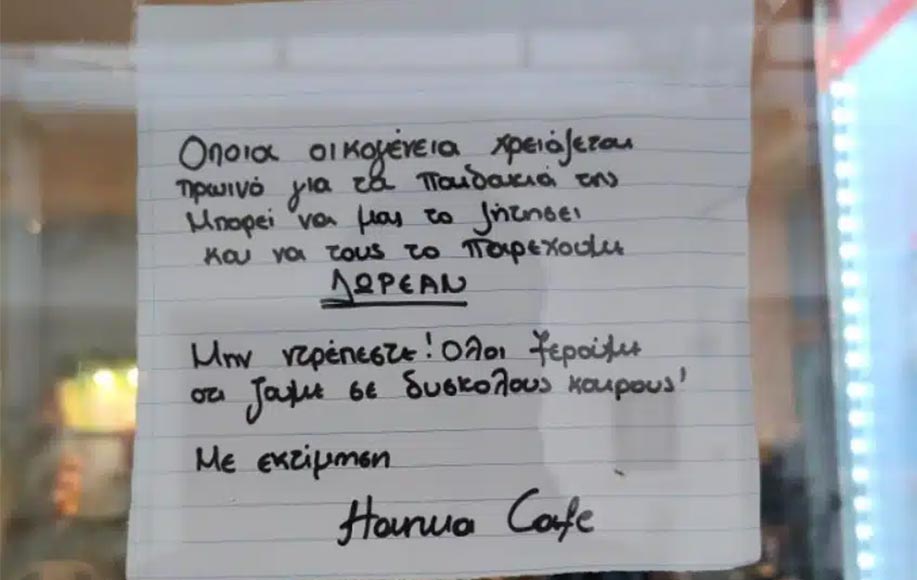 Οποια οικογένεια χρειάζεται
πρωινό για τα παιδακιά της
Μπορεί να μας το ζητησει
και να τους το παρεχουμε
ΔΩΡΕΑΝ
Μην ντρέπεστε! Ολοι ξερουμε
οτι ζουμε σε δυσκολους καιρους!
Με εκτίμηση
Cafe